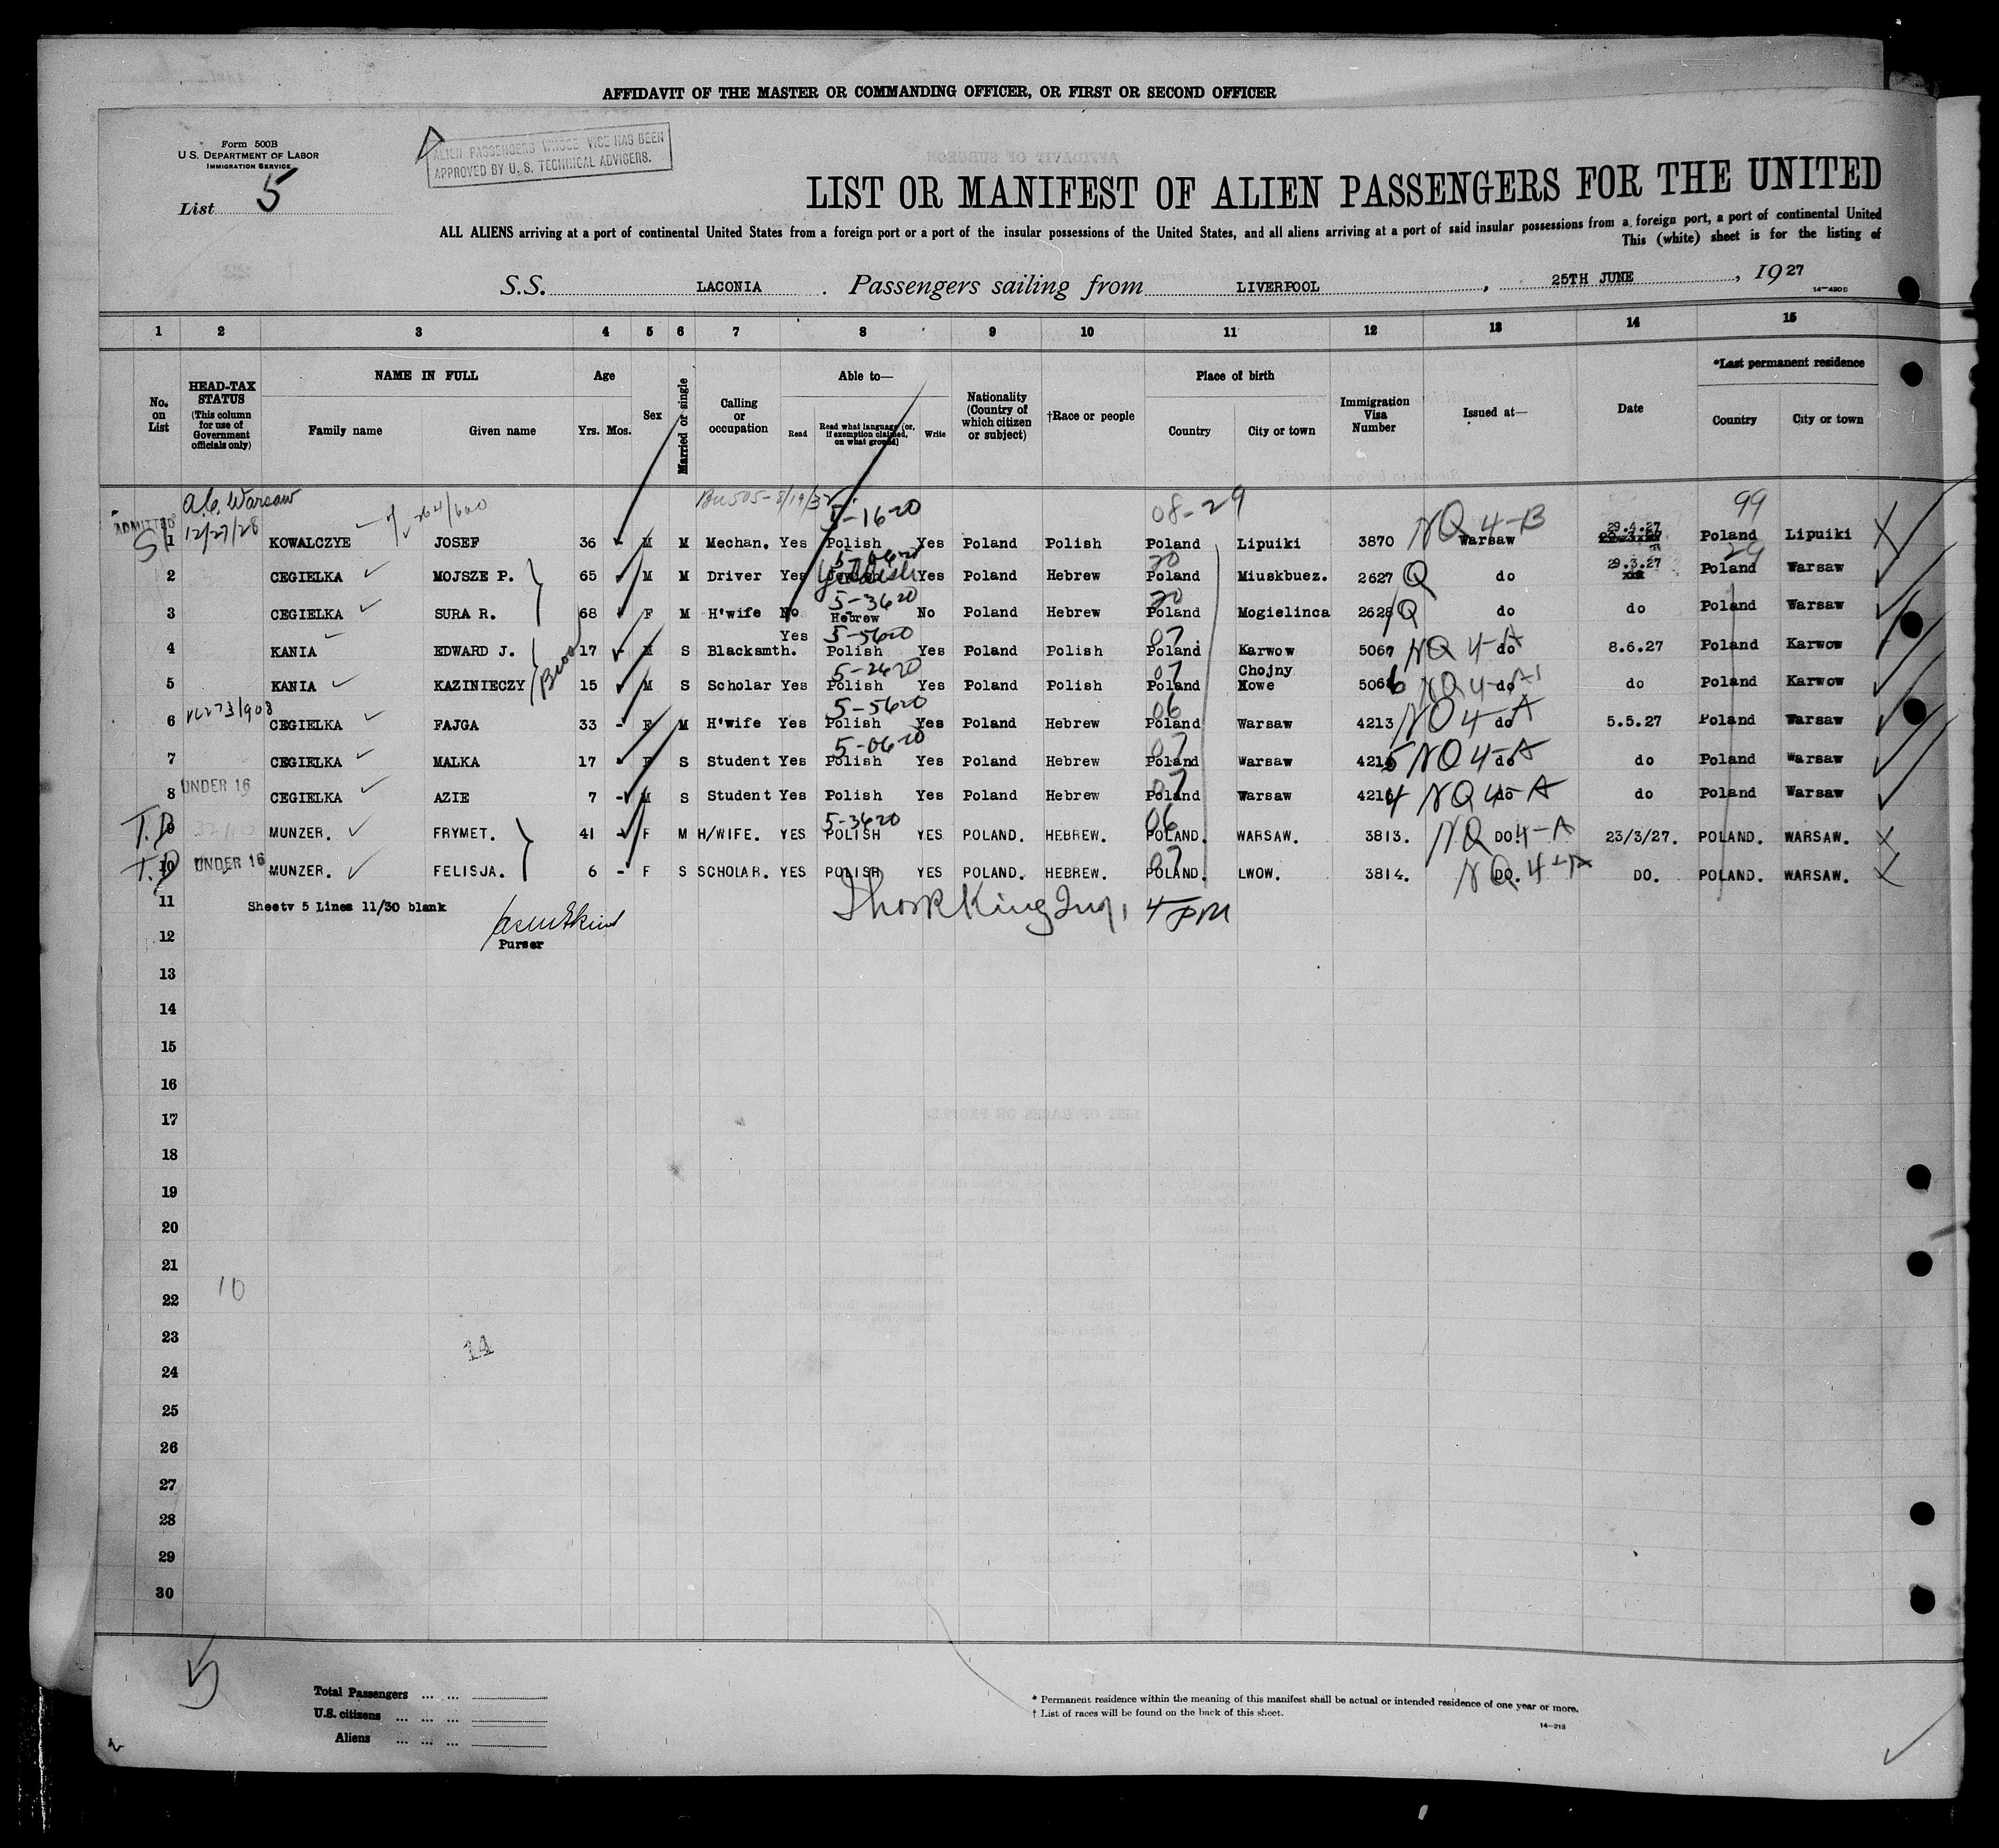 AFFIDAVIT OF THE MASTER OR COMMANDING OFFICER, OR FIRST OR SECOND OFFICER
Form 500B
U. S. DEPARTMENT OF LABOR
IMMIGRATION SERVICE
List 5
ALIEN PASSENGERS WHOSE VICE HAS BEEN
APPROVED BY U. S. TECHNICAL ADVISERS.
LIST OR MANIFEST OF ALIEN PASSENGERS FOR THE UNITED
ALL ALIENS arriving at a port of continental United States from a foreign port or a port of the insular possessions of the United States, and all aliens arriving at a port of said insular possessions from a foreign port, a port of continental United
This (white) sheet is for the listing of
S.S. LACONIA. Passengers sailing from LIVERPOOL, 25TH JUNE, 1927
14—490B
1 2 3 4 5 6 7 8 9 10 11 12 13 14 15
No. on List
HEAD-TAX STATUS (This column for use of Government officials only)
NAME IN FULL
Family name Given name
Age
Yrs. Mos.
Sex
Married or single
Calling or occupation
Able to—
Read Read what language (or, if exemption claimed, on what ground) Write
Nationality (Country of which citizen or subject)
†Race or people
Place of birth
Country City or town
Immigration Visa Number
Issued at—
Date
*Last permanent residence
Country City or town
a.c. Warsaw 5-1620 08-29 NQ 4-B 99
ADMITTED 12/27/28
1 KOWALCZYE JOSEF 36 M M Mechan. Yes Polish Yes Poland Polish Poland Lipuiki 3870 Warsaw 29.4.27 Poland Lipuiki
2 CEGIELKA MOJSZE P. 65 M M Driver Yes Yiddish Yes Poland Hebrew Poland Miuskbuez. 2627 Q do 29.3.27 Poland Warsaw
5-3620 20
3 CEGIELKA SURA R. 68 F M H'wife No Hebrew No Poland Hebrew Poland Mogielinca 2628 Q do do Poland Warsaw
Yes 5-5620 07
4 KANIA EDWARD J. 17 M S Blacksmth. Polish Yes Poland Polish Poland Karwow 5067 NQ 4-A do 8.6.27 Poland Karwow
5-2620 07 Chojny
5 KANIA KAZINIECZY 15 M S Scholar Yes Polish Yes Poland Polish Poland Nowe 5066 NQ 4-A do do Poland Karwow
5-5620 06
6 CEGIELKA FAJGA 33 - F M H'wife Yes Polish Yes Poland Hebrew Poland Warsaw 4213 NQ 4-A do 5.5.27 Poland Warsaw
5-0620 07
7 CEGIELKA MALKA 17 - F S Student Yes Polish Yes Poland Hebrew Poland Warsaw 4215 NQ 4-A do do Poland Warsaw
UNDER 16 07
8 CEGIELKA AZIE 7 - M S Student Yes Polish Yes Poland Hebrew Poland Warsaw 4214 NQ 4-A do do Poland Warsaw
5-3620 06
T.D 9 MUNZER. FRYMET. 41 - F M H/WIFE. YES POLISH YES POLAND. HEBREW. POLAND. WARSAW. 3813. NQ DO. 4-A 23/3/27. POLAND. WARSAW.
UNDER 16 07
T.D 10 MUNZER. FELISJA. 6 - F S SCHOLAR. YES POLISH YES POLAND. HEBREW. POLAND. LWOW. 3814. NQ DO. 4-A DO. POLAND. WARSAW.
11 Sheetv 5 Lines 11/30 blank
4 PM
12 Purser
13
14
15
16
17
18
19
20
21
10
22
23
14
24
25
26
27
28
29
30
5
Total Passengers ... ...
U.S. citizens ... ... ...
Aliens ... ... ...
* Permanent residence within the meaning of this manifest shall be actual or intended residence of one year or more.
† List of races will be found on the back of this sheet.
14—213